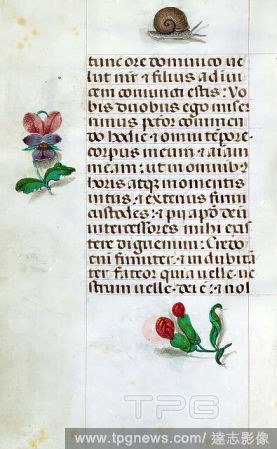 tunc ore dominico ue
lut mr̄ ⁊ filius ad inui
cem coniuncti estis: Vo
bis duobus ego miser
rimus pctor commen
do hodie ⁊ omni tempore
corpus meum ⁊ aīam
meam: ut in omnibus
horis atq; momentis
intus ⁊ exterius firmi
custodes: ⁊ pij apd̄ deū
intercessores mihi exis
tere dignemini: Credo
enī firmiter ⁊ indubitā
ter fateor quia uelle ue
strum uelle dei ē: ⁊ nol
TPG
www.tpgnews.com/達志影像